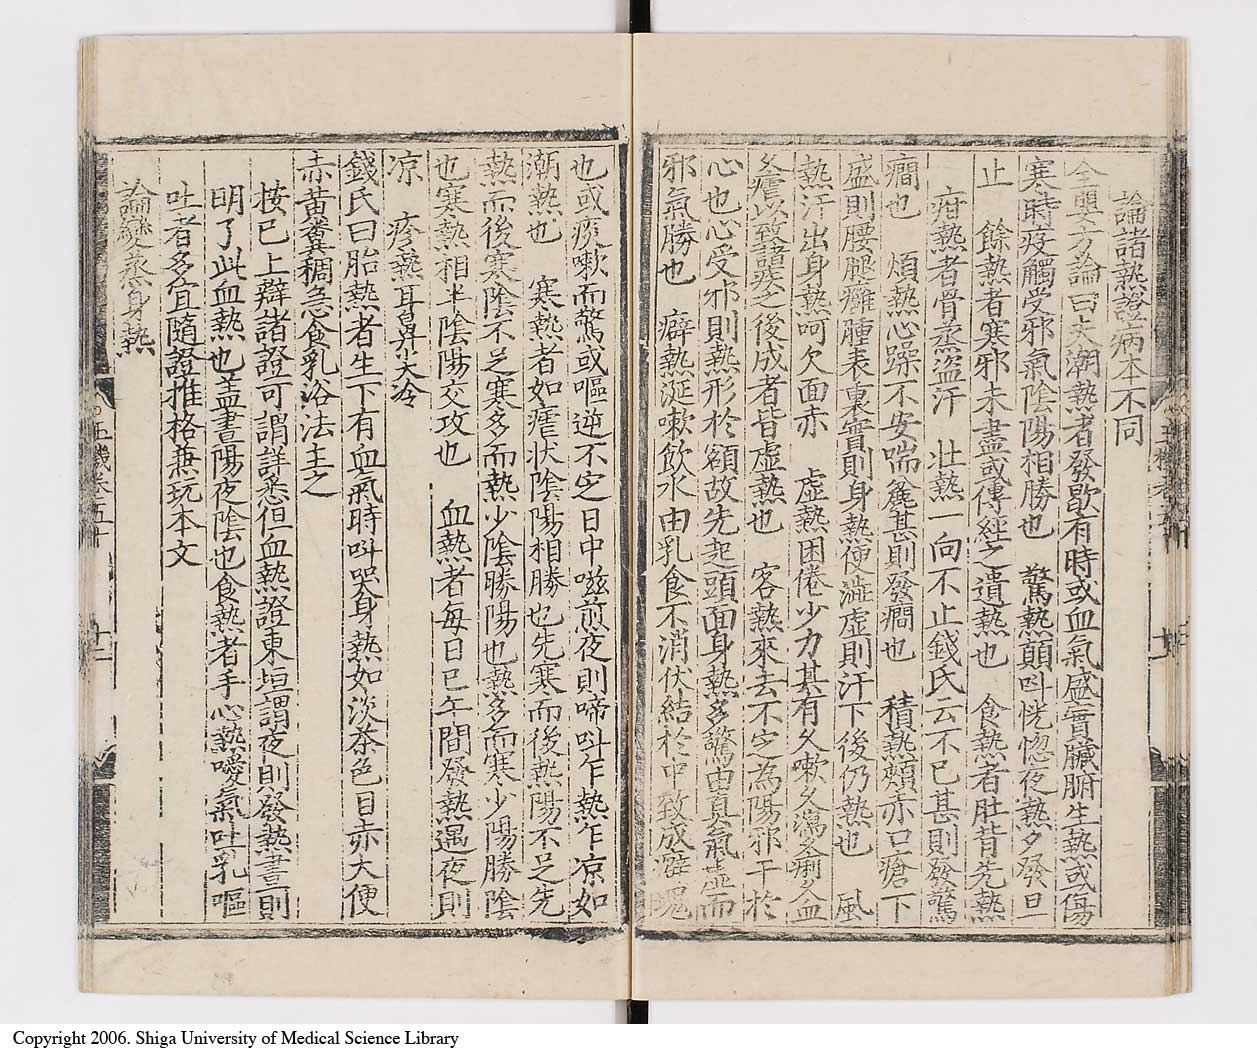 論諸熱證病本不同
全嬰方論曰夫潮熱者發歇有時或血氣盛實臟腑生熱或傷
寒時疫觸受邪氣陰陽相勝也　驚熱顛叫恍惚夜熱夕發旦
止　餘熱者寒邪未盡或傳經之遺熱也　食熱者肚背先熱
疳熱者骨蒸盜汗　壯熱一向不止錢氏云不已甚則發驚
癇也　煩熱心躁不安喘麄甚則發癇也　積熱頰赤口瘡下
盛則腰腿癰腫表裏實則身熱便澁虛則汗下後仍熱也　風
熱汗出身熱呵欠面赤　虛熱困倦少力其有久嗽久瀉久痢久血
久瘧以致諸疾之後成者皆虛熱也　客熱來去不定為陽邪干於
心也心受邪則熱形於額故先起頭面身熱多驚由真氣虛而
邪氣勝也　癖熱涎嗽飲水由乳食不消伏結於中致成癖塊
也或痰嗽而驚或嘔逆不定日中嗞煎夜則啼叫乍熱乍凉如
潮熱也　寒熱者如瘧狀陰陽相勝也先寒而後熱陽不足先
熱而後寒陰不足寒多而熱少陰勝陽也熱多而寒少陽勝陰
也寒熱相半陰陽交攻也　血熱者每日巳午間發熱遇夜則
凉　疹熱耳鼻尖冷
錢氏曰胎熱者生下有血氣時叫哭身熱如淡茶色目赤大便
赤黃糞稠急食乳浴法主之
按已上辯諸證可謂詳悉但血熱證東垣謂夜則發熱晝則
明了此血熱也盖晝陽夜陰也食熱者手心熱噯氣吐乳嘔
吐者多宜隨證推格兼玩本文
論變蒸身熱
玉機卷五十
十二
Copyright 2006. Shiga University of Medical Science Library